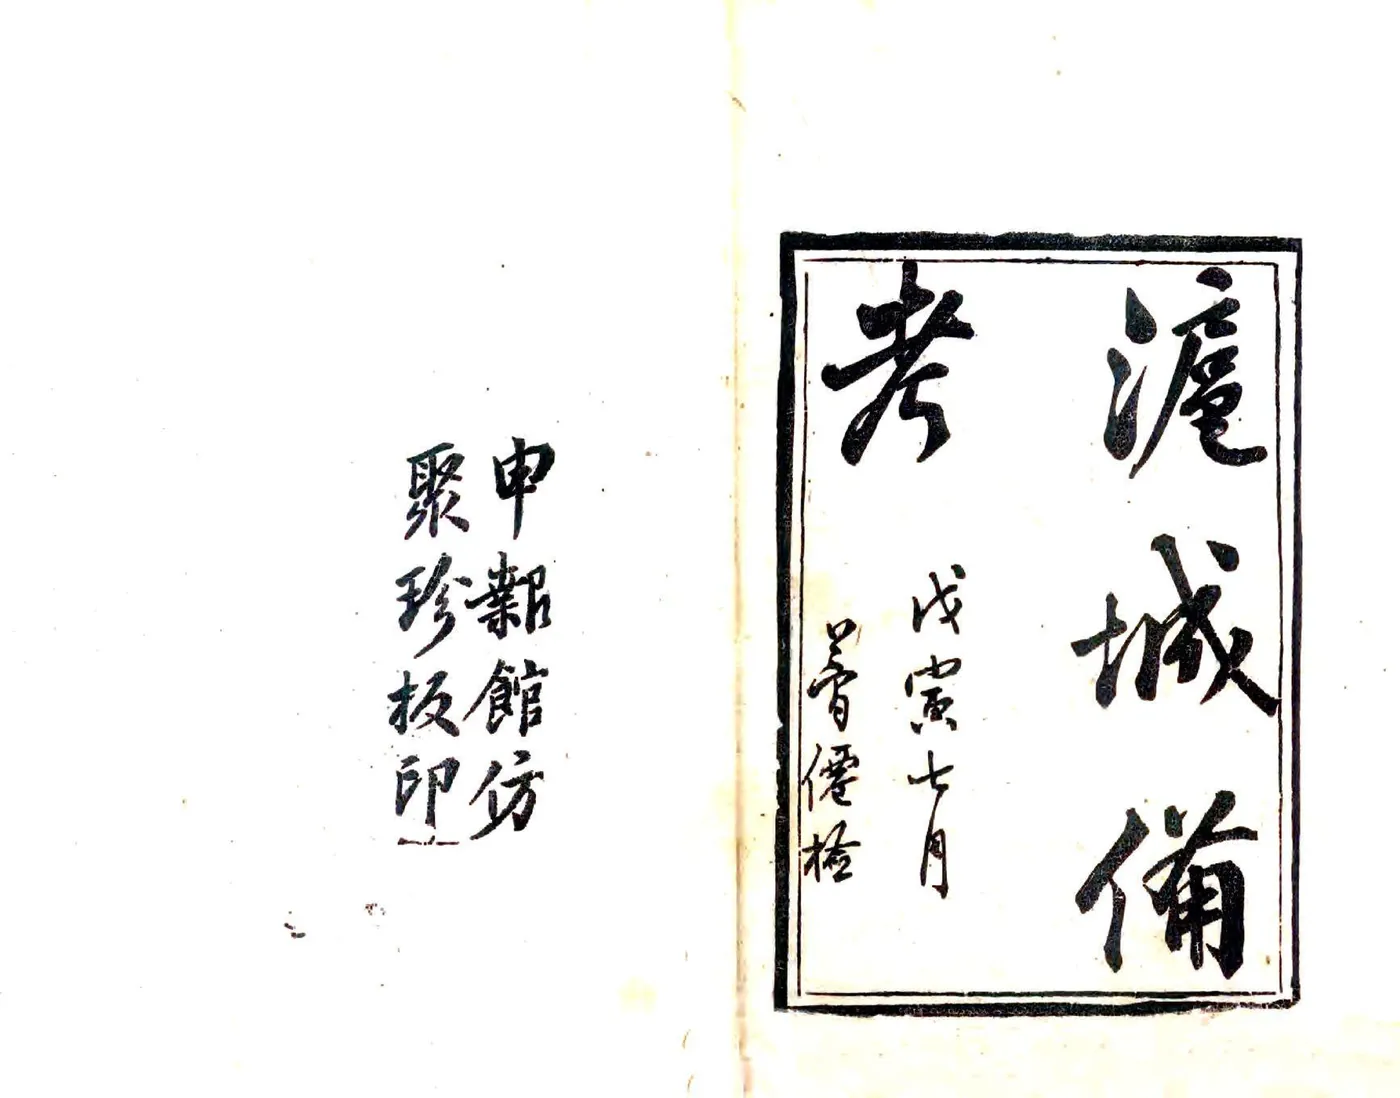 滬城備
考
戊寅七月
蒼僊檢
申報館仿
聚珍板印